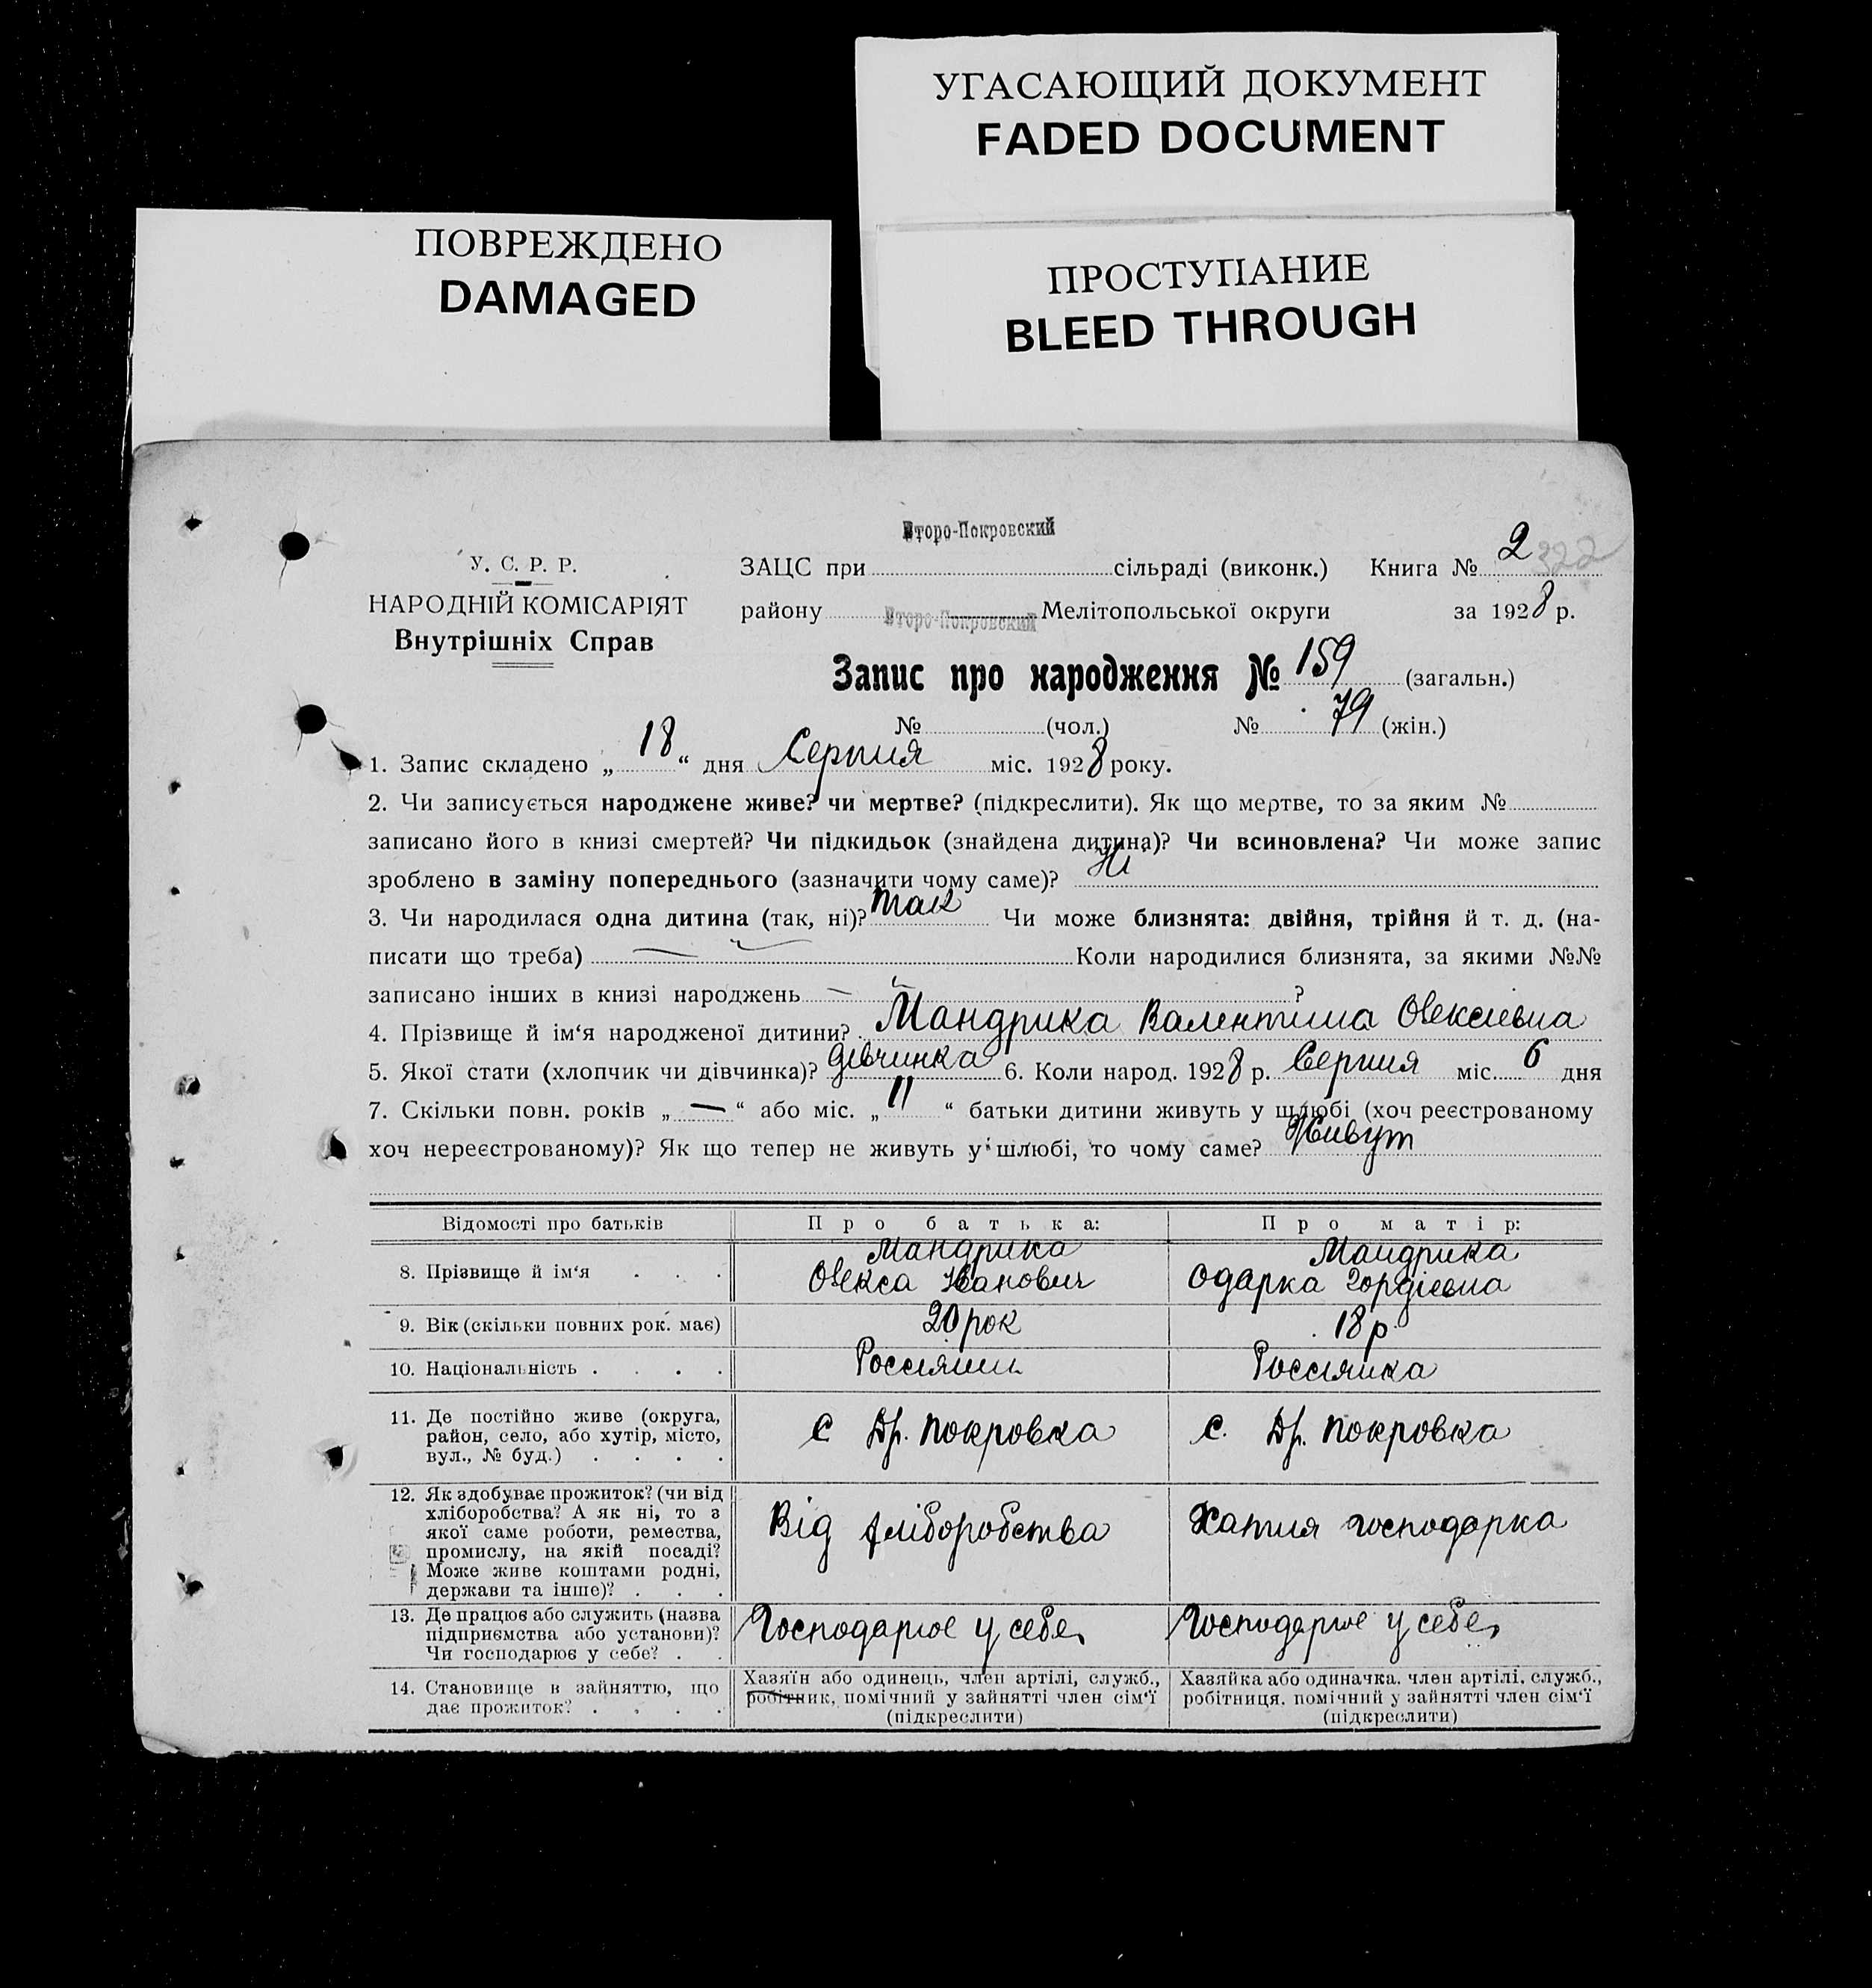 УГАСАЮЩИЙ ДОКУМЕНТ
FADED DOCUMENT
ПОВРЕЖДЕНО
DAMAGED
ПРОСТУПАНИЕ
BLEED THROUGH
Второ-Покровский
У. С. Р. Р.
НАРОДНІЙ КОМІСАРІЯТ
Внутрішніх Справ
ЗАЦС при сільраді (виконк.) Книга № 2 322
району Второ-Покровский Мелітопольської округи за 1928 р.
Запис про народження № 159 (загальн.)
№ (чол.) № 79 (жін.)
1. Запис складено „ 18 “ дня Серпня міс. 1928 року.
2. Чи записується народжене живе? чи мертве? (підкреслити). Як що мертве, то за яким №
записано його в книзі смертей? Чи підкидьок (знайдена дитина)? Чи всиновлена? Чи може запис
зроблено в заміну попереднього (зазначити чому саме)? Ні
3. Чи народилася одна дитина (так, ні)? так Чи може близнята: двійня, трійня й т. д. (на-
писати що треба) — Коли народилися близнята, за якими №№
записано інших в книзі народжень — ?
4. Прізвище й ім‘я народженої дитини? Мандрика Валентина Олексіевна
5. Якої стати (хлопчик чи дівчинка)? дівчинка 6. Коли народ. 1928 р. Серпня міс. 6 дня
7. Скільки повн. років „ — “ або міс. „ 11 “ батьки дитини живуть у шлюбі (хоч реєстрованому
хоч нереєстрованому)? Як що тепер не живуть у шлюбі, то чому саме? Живут
Відомості про батьків Про батька: Про матір:
8. Прізвище й ім‘я . . . Мандрика Олекса Іванович Мандрика Одарка Гордіевна
9. Вік (скільки повних рок. має) 20 рок 18 р.
10. Національність . . . . Россіянин Россіянка
11. Де постійно живе (округа,
район, село, або хутір, місто,
вул., № буд.) . . . .
с Др. Покровка
с. Др. Покровка
12. Як здобуває прожиток? (чи від
хліборобства? А як ні, то з
якої саме роботи, ремества,
промислу, на якій посаді?
Може живе коштами родні,
держави та інше)? . . .
Від хліборобства
Хатня господарка
13. Де працює або служить (назва
підприємства або установи)?
Чи господарює у себе? . .
Господарює у себе
Господарює у себе
14. Становище в зайняттю, що
дає прожиток? . . . .
Хазяїн або одинець, член артілі, служб.,
робітник, помічний у зайнятті член сім‘ї
(підкреслити)
Хазяйка або одиначка, член артілі, служб.,
робітниця, помічний у зайнятті член сім‘ї
(підкреслити)